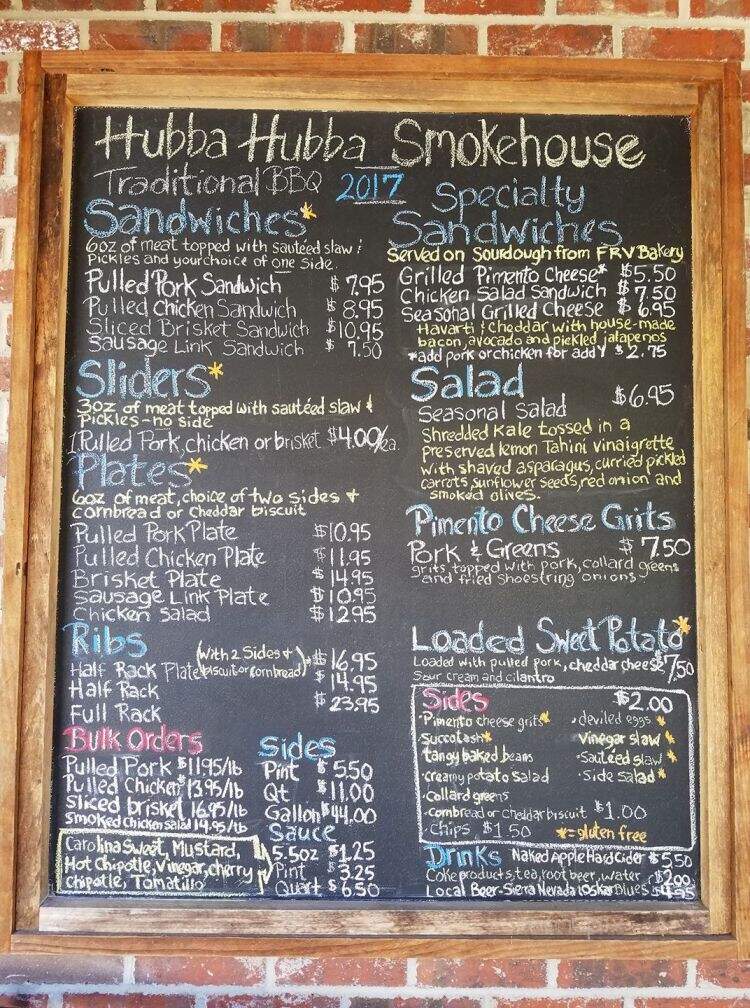 Hubba Hubba Smokehouse
Traditional BBQ 2017
Sandwiches*
6oz of meat topped with sautéed slaw &
Pickles and your choice of one side.
Pulled Pork Sandwich $7.95
Pulled Chicken Sandwich $8.95
Sliced Brisket Sandwich $10.95
Sausage Link Sandwich $7.50
Sliders*
3oz of meat topped with sautéed slaw &
Pickles - no side
1 Pulled Pork, chicken or brisket $4.00/ea.
Plates*
6oz of meat, choice of two sides +
cornbread or cheddar biscuit
Pulled Pork Plate $10.95
Pulled Chicken Plate $11.95
Brisket Plate $14.95
Sausage Link Plate $10.95
Chicken Salad $12.95
Ribs
Half Rack Plate (With 2 Sides + biscuit or cornbread)* $16.95
Half Rack $14.95
Full Rack $23.95
Bulk Orders
Pulled Pork $11.95/lb
Pulled Chicken $13.95/lb
Sliced brisket 16.95/lb
Smoked Chicken Salad 14.95/lb
Carolina Sweet, Mustard,
Hot Chipotle, Vinegar, cherry
chipotle, Tomatillo
Sides
Pint $5.50
Qt $11.00
Gallon $44.00
Sauce
5.5oz $1.25
Pint $3.25
Quart $6.50
Specialty
Sandwiches
Served on Sourdough from FRV Bakery
Grilled Pimento Cheese* $5.50
Chicken Salad Sandwich $7.50
Seasonal Grilled Cheese $6.95
Havarti & cheddar with house-made
bacon, avocado and pickled jalapenos
*add pork or chicken for add'l $2.75
Salad
Seasonal Salad $6.95
Shredded Kale tossed in a
preserved lemon Tahini vinaigrette
with shaved asparagus, curried pickled
carrots, sunflower seeds, red onion and
smoked olives.
Pimento Cheese Grits
Pork & Greens $7.50
grits topped with pork, collard greens
and fried shoestring onions
Loaded Sweet Potato*
Loaded with pulled pork, cheddar cheese $7.50
Sour cream and cilantro
Sides $2.00
·Pimento cheese grits*
·Succotash*
·tangy baked beans
·creamy potato salad
·collard greens
·deviled eggs *
·Vinegar slaw *
·Sautéed slaw *
·Side salad *
·cornbread or Cheddar biscuit $1.00
·Chips $1.50 *=gluten free
Drinks Naked Apple Hard Cider $5.50
Coke products, tea, root beer, water $2.00
Local Beer - Sierra Nevada + Oskar Blues $4.95